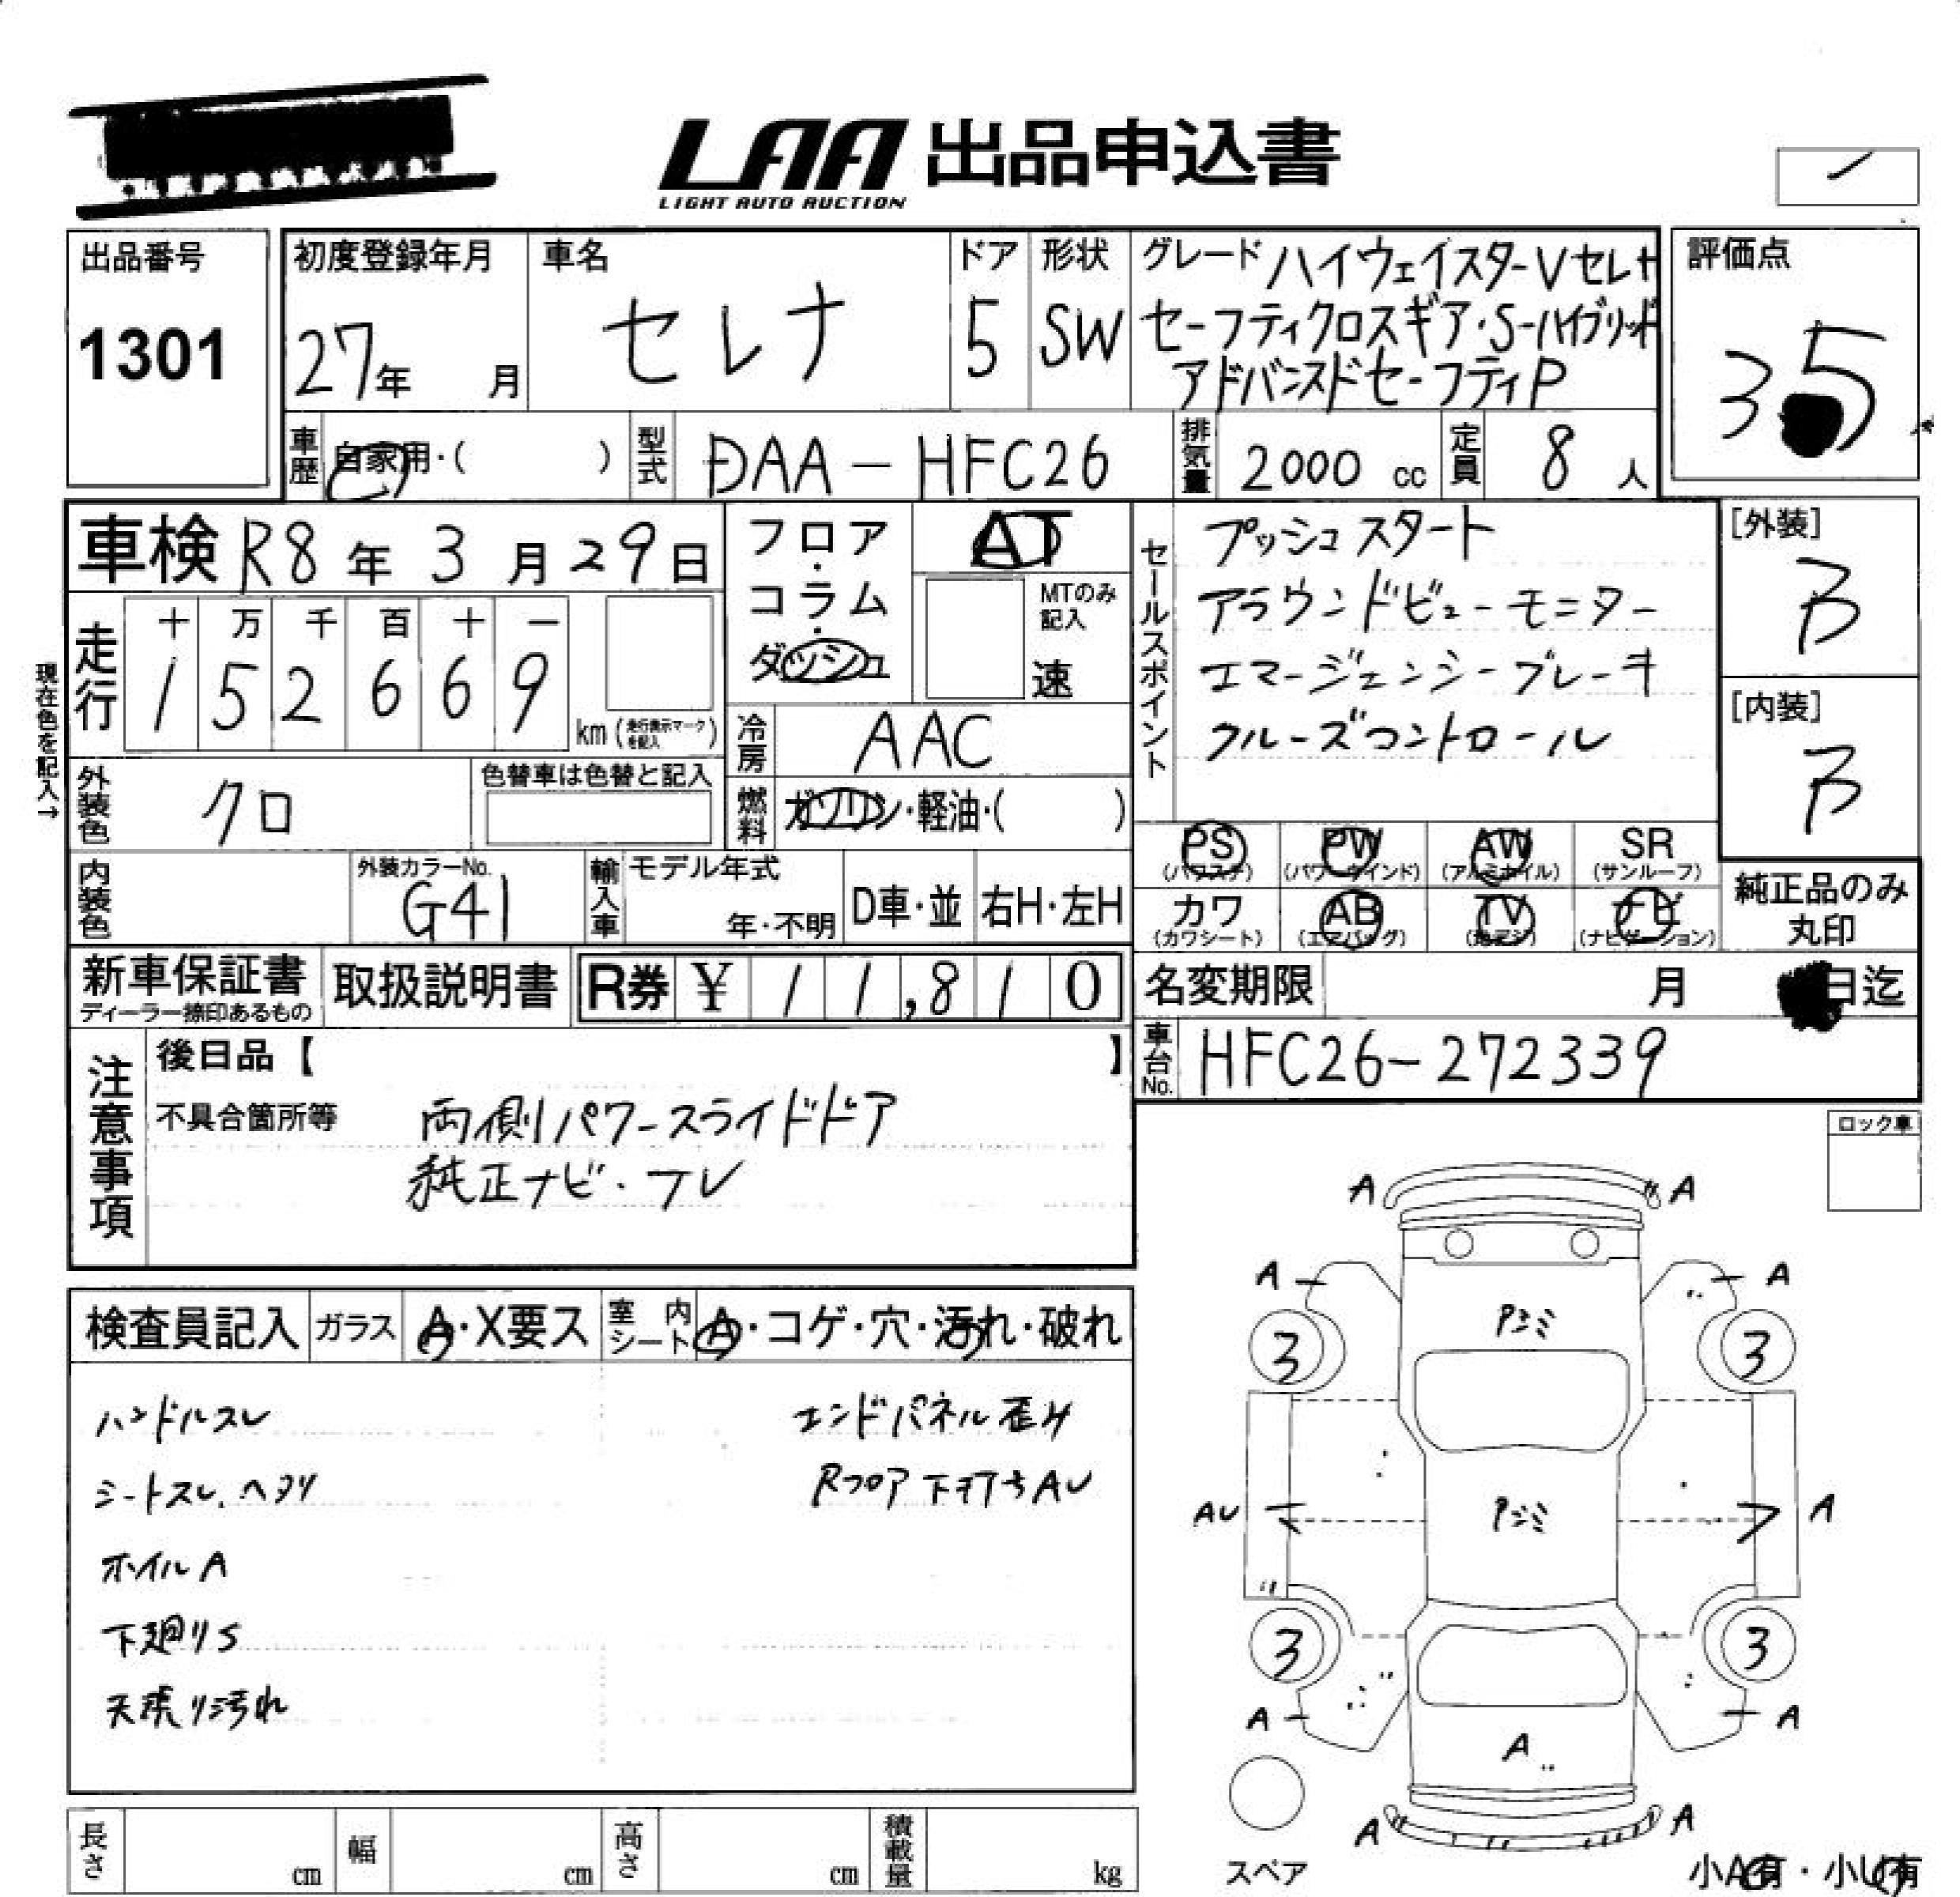 LAA 出品申込書
LIGHT AUTO AUCTION
出品番号
1301
初度登録年月
27年 月
車名
セレナ
ドア
5
形状
SW
グレード ハイウェイスターVセレナ
セーフティクロスギア・S-ハイブリッド
アドバンスドセーフティP
評価点
3.5
車歴 自家用・( )
型式 DAA-HFC26
排気量 2000 cc
定員 8 人
車検 R8年 3月 29日
フロア・コラム・ダッシュ
AT
MTのみ記入
速
セールスポイント
プッシュスタート
アラウンドビューモニター
エマージェンシーブレーキ
クルーズコントロール
[外装]
B
[内装]
B
現在色を記入→
走行
十 万 千 百 十 一
1 5 2 6 6 9
km(走行表示マークを記入)
冷房 AAC
外装色 クロ
色替車は色替と記入
燃料 ガソリン・軽油・( )
PS (パワステ)
PW (パワーウインド)
AW (アルミホイル)
SR (サンルーフ)
カワ (カワシート)
AB (エアバッグ)
TV (地デジ)
ナビ (ナビゲーション)
純正品のみ丸印
内装色
外装カラーNo.
G41
輸入車
モデル年式
年・不明
D車・並
右H・左H
新車保証書
ディーラー捺印あるもの
取扱説明書
R券 ¥ 11,810
名変期限 月 日迄
車台No. HFC26-272339
注意事項
後日品【 】
不具合箇所等
両側パワースライドドア
純正ナビ・テレ
ロック車
検査員記入
ガラス A・X要ス
室内シート A・コゲ・穴・汚れ・破れ
ハンドルスレ
シートスレ、ヘタリ
ホイルA
下廻りS
天張り汚れ
エンドパネル歪み
Rフロア下ヲチAU
A A
A A
Pシミ
3 3
AU Pシミ A
3 3
A A
A
A A
スペア
小A有・小U有
長さ cm
幅 cm
高さ cm
積載量 kg